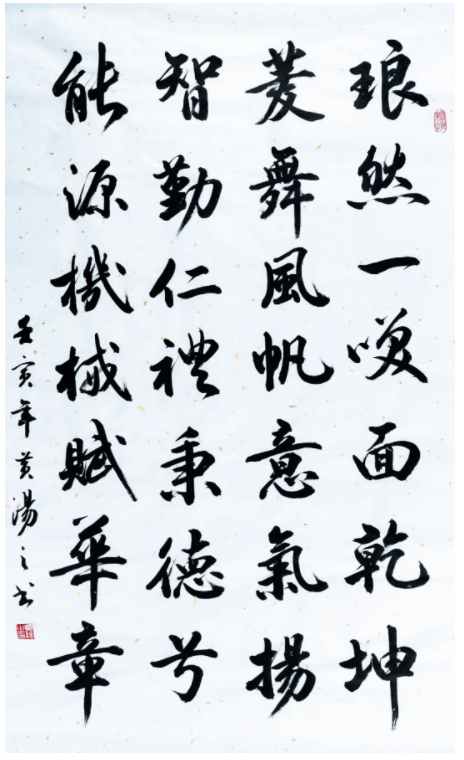 琅然一笑面乾坤
菱舞風帆意氣揚
智勤仁禮秉德兮
能源機械賦華章
壬寅年黄湯之书